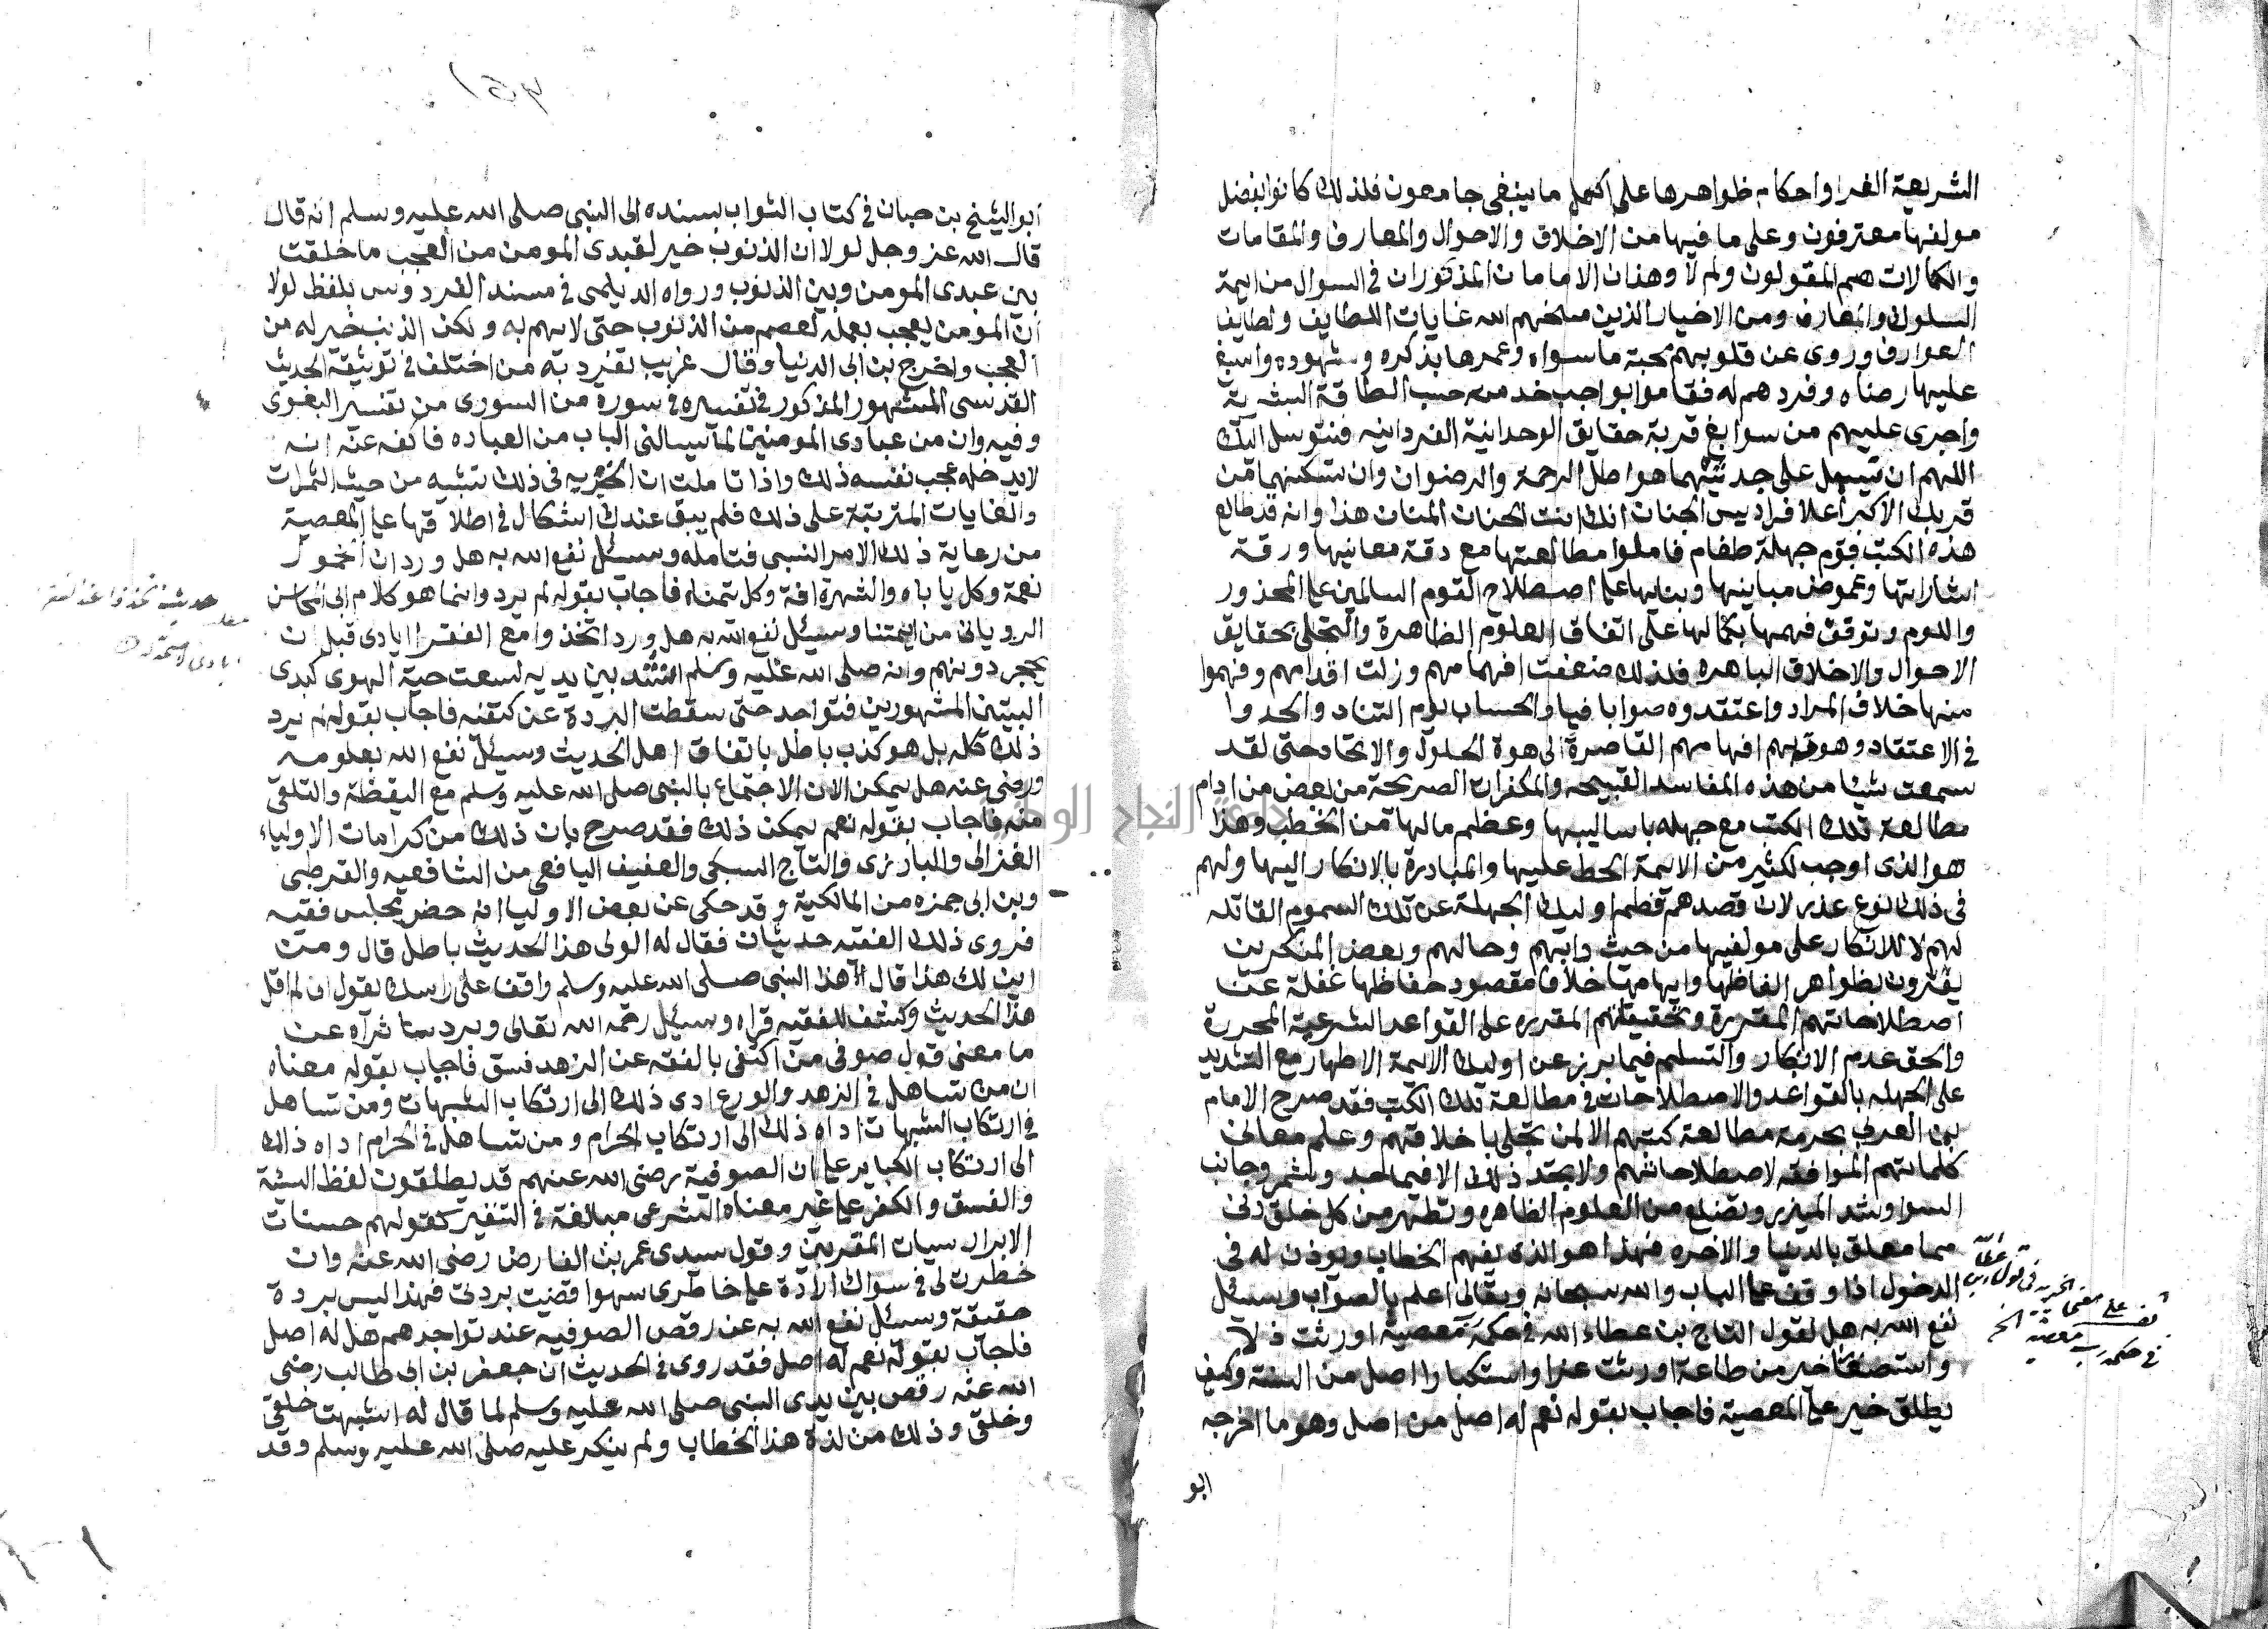 الشريعة الغرا واحكام ظواهرها على اكمل ما ينبغى جامعون فلذلك كانوا بفضل
مولفها معترفون وعلى ما فيها من الاخلاق والاحوال والمعارف والمقامات
والكمالات هم المقولون ولم لا وهذان الامامان المذكوران فى السوال من ايمة
السلوك والمعارف ومن الاخيار الذين منحهم الله غايات اللطايف ولطايف
العوارف وروى عن قلوبهم محبة ما سواه وعمرها بذكره وشهوده واسبغ
عليها رضاه وفردهم له فقاموا بواجب خدمته حسب الطاقة البشرية
واجرى عليهم من سوابغ قربة حقايق الوحدانية الفردانيه فنتوسل اليك
اللهم ان تسبل على جدثيهما هواطل الرحمة والرضوان وان تسكنهما من
قربك الاكبر أعلا فراديس الجنان انك انت الحنان المنان هذا وانه قد طالع
هذه الكتب قوم جهلة طغام فاملوا مطالعتها مع دقة معانيها ورقة
اشاراتها وغموض مبانيها وبنايها على اصطلاح القوم السالمين على المحذور
واللوم وتوقف فهمها بكمالها على اتفاق العلوم الظاهرة والتحلى بحقايق
الاحوال والاخلاق الباهره فلذلك ضعفت افهامهم وزلت اقدامهم وفهموا
منها خلاف المراد واعتقدوه صوابا فباوا بخسار يوم التناد والحدوا
فى الاعتقاد وهوت بهم افهامهم القاصرة الى هوة الحلول والاتحاد حتى لقد
سمعت شيا من هذه المفاسد القبيحه والمكفرات الصريحة من بعض من ادام
مطالعة تلك الكتب مع جهله باساليبها وعظم ما لها من الخطب وهذا
هو الذى اوجب لكثير من الايمة الحط عليها والمبادرة بالانكار اليها ولهم
فى ذلك نوع عذر لان قصدهم فطم اوليك الجهلة عن تلك السموم القاتله
لهم لا للانكار على مولفيها من حيث ذاتهم وحالهم وبعض المنكرين
يغترون بظواهر الفاظها وايهامها خلاف مقصود حفاظها غفلة عن
اصطلاحاتهم المقررة وتحقيقاتهم المقرره على القواعد الشرعية المحررة
والحق عدم الانكار والتسليم فيما برز عن اوليك الايمة الاطهار مع التشديد
على الجهله بالقواعد والاصطلاحات فى مطالعة تلك الكتب فقد صرح الامام
بن العربى بحرمة مطالعة كتبهم الا لمن تحلى باخلاقهم وعلم معانى
كلماتهم الموافقه لاصطلاحاتهم ولا يجد ذلك الا فيما جد وشمر وجانب
السوا وشد الميزر وتضلع من العلوم الظاهره وتطهر من كل خلق دنى
مما يتعلق بالدنيا والاخره فهذا هو الذى يفهم الخطاب ويوذن له فى
الدخول اذا وقف على الباب والله سبحانه وتعالى اعلم بالصواب وسيل
نفع الله به هل لقول التاج بن عطاء الله فى حكمه معصية اورثت ذلا
واستصغارا خير من طاعة اورثت عزا واستكبارا اصل من السنة وكيف
يطلق خير على المعصية فاجاب بقوله نعم له اصل من اصل وهو ما اخرجه
ابو
قف على معنى الخيريه فى قول بن عطا
فى حكمه رب معصية الخ
ابو الشيخ بن حبان فى كتاب الثواب بسنده الى النبى صلى الله عليه وسلم انه قال
قال الله عز وجل لولا ان الذنوب خير لعبدى المومن من العجب ما خلقت
بين عبدى المومن وبين الذنوب ورواه الديلمى فى مسند الفردوس بلفظ لولا
ان المومن يعجب بعمله لعصم من الذنوب حتى لا يهم به ولكن الذنب خير له من
العجب واخرج بن ابى الدنيا وقال غريب تفرد به من اختلف فى توثيقه الحديث
القدسى المشهور المذكور فى تفسيره فى سورة من السورى من تفسير البغوى
وفيه وان من عبادى المومنين لمن يسالنى الباب من العباده فاكفه عنه انه
لا يدخله عجب نفسه ذلك واذا تاملت ان الخيريه فى ذلك تثبته من حيث الثمرات
والغايات المترتبة على ذلك فلم يبق عندك اشكال فى اطلاقها على المعصية
من رعاية ذلك الامر النسبى فتامله وسيل نفع الله به هل ورد ان الخمول
نعمة وكل ياباه والشهرة افة وكل يتمناه فاجاب بقوله لم يرد وانما هو كلام ابى المحاسن
الرويانى من ايمتنا وسيل نفع الله به هل ورد اتخذوا مع الفقرا ايادى قبل ان
يجى دولتهم وانه صلى الله عليه وسلم انشد بين يديه لسعت حية الهوى كبدى
البيتين المشهورين فتواجد حتى سقطت البردة عن كتفه فاجاب بقوله لم يرد
ذلك كله بل هو كذب باطل باتفاق اهل الحديث وسيل نفع الله بعلومه
ورضى عنه هل يمكن الان الاجتماع بالنبى صلى الله عليه وسلم مع اليقظة والتلقى
منه فاجاب بقوله نعم يمكن ذلك فقد صرح بان ذلك من كرامات الاولياء
الغزالى والبارزى والتاج السبكى والعفيف اليافعى من الشافعيه والقرطبى
وبن ابى جمزه من المالكية وقد حكى عن بعض الاوليا انه حضر مجلس فقيه
فروى ذلك الفقيه حديثان فقال له الولى هذا الحديث باطل قال ومن
اين لك هذا قال هذا النبى صلى الله عليه وسلم واقف على راسك يقول انى لم اقل
هذا الحديث وكشف للفقيه فراه وسيل رحمه الله تعالى وبرد ثراه عن
ما معنى قول صوفى من اكتفى بالفقه عن الزهد فسق فاجاب بقوله معناه
ان من تساهل فى الزهد والورع ادى ذلك الى ارتكاب الشبهات ومن تساهل
فى ارتكاب الشبهات اداه ذلك الى ارتكاب الحرام ومن تساهل فى الحرام اداه ذلك
الى ارتكاب الكباير على ان الصوفية رضى الله عنهم قد يطلقون لفظ السيئة
والفسق والكفر على غير معناه الشرعى مبالغة فى التنفير كقولهم حسنات
الابرار سيات المقربين وقول سيدى عمر بن الفارض رضى الله عنه وان
خطرت لى فى سواك ارادة على خاطرى سهوا قضيت بردتى فهذا ليس بردة
حقيقة وسيل نفع الله به عن رقص الصوفيه عند تواجدهم هل له اصل
فاجاب بقوله نعم له اصل فقد روى فى الحديث ان جعفر بن ابى طالب رضى
الله عنه رقص بين يدى النبى صلى الله عليه وسلم لما قال له اشبهت خلقى
وخلقى وذلك من لذة هذا الخطاب ولم ينكر عليه صلى الله عليه وسلم وقد
جامعة النجاح الوطنية